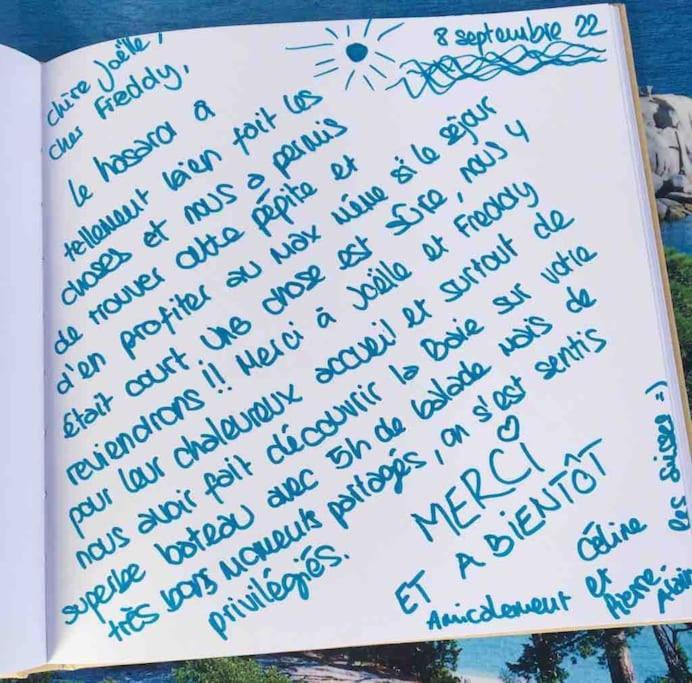 8 septembre 22
Chère Joëlle,
Cher Freddy,
Le hasard a
tellement bien fait les
choses et nous a permis
de trouver cette pépite et
d'en profiter au max même si le séjour
était court. Une chose est sûre, nous y
reviendrons !! Merci à Joëlle et Freddy
pour leur chaleureux accueil et surtout de
nous avoir fait découvrir la Baie sur votre
superbe bateau avec 5h de balade mais de
très bons moments partagés, on s'est sentis
privilégiés.
MERCI
ET A BIENTÔT
Amicalement
Céline
et
Pierre-Alain
les suisses =)